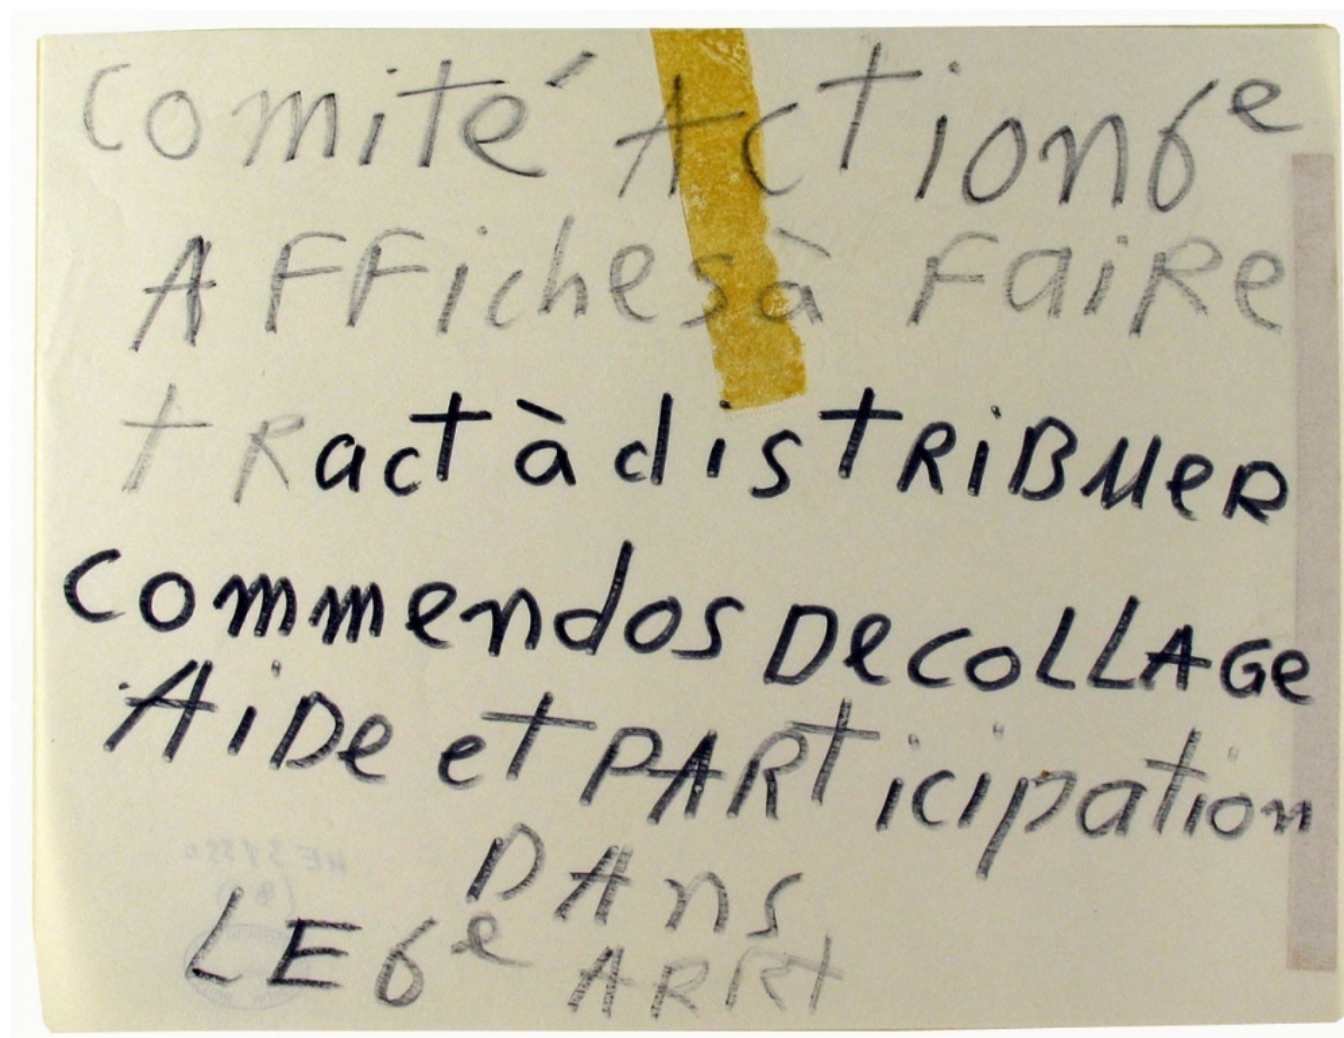 comité Action 6e
AFFiches à FaiRe
tRact à distRiBueR
commendos De coLLAGe
AiDe et PARticipation
DAns
LE 6e ARRt